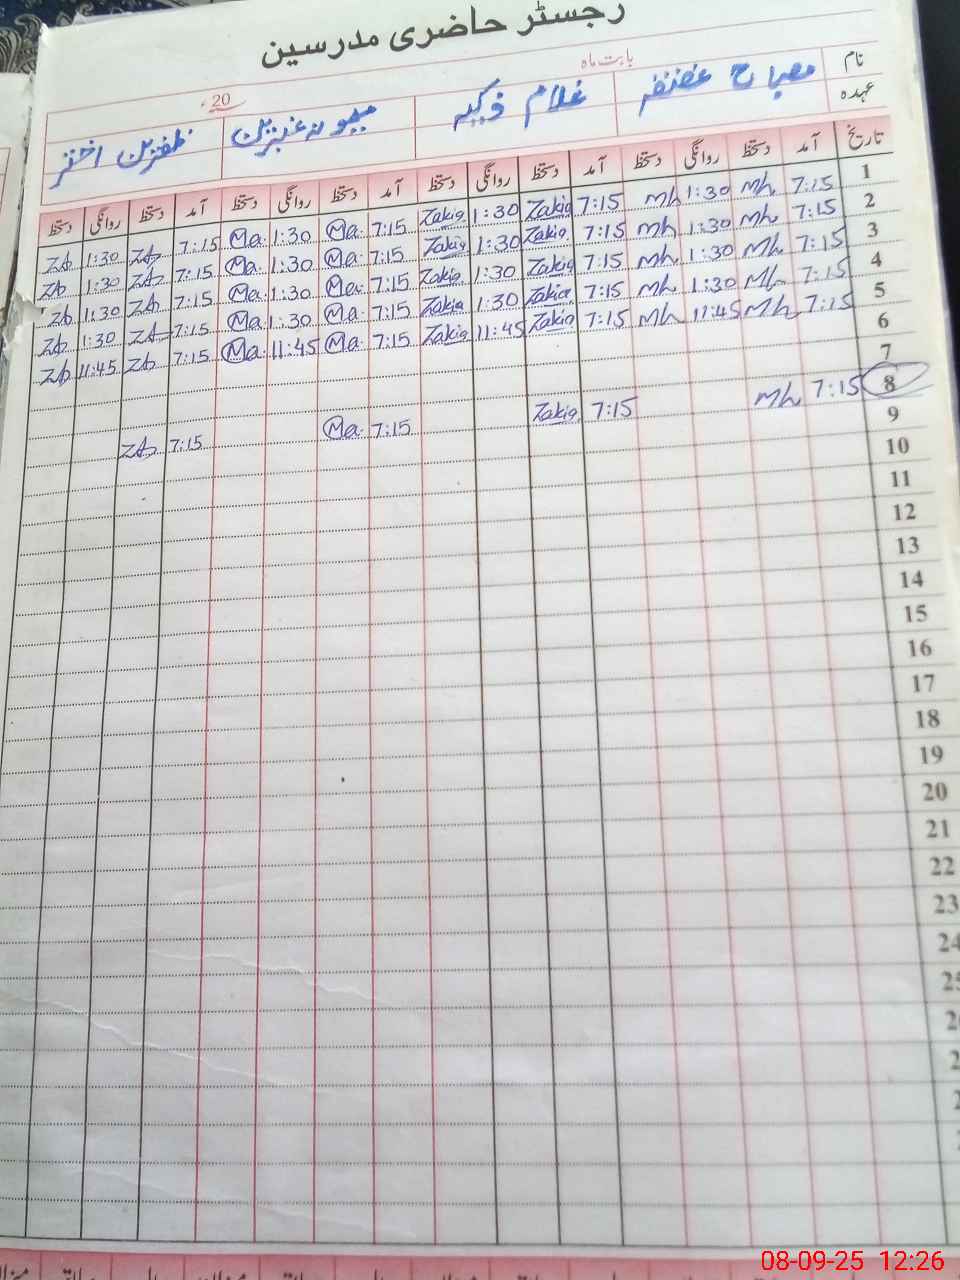 رجسٹر حاضری مدرسین
بابت ماہ 20ء
نام مصباح غضنفر غلام زکیہ میمونہ عنبرین ظفرین اختر
عہدہ
تاریخ آمد دستخط روانگی دستخط آمد دستخط روانگی دستخط آمد دستخط روانگی دستخط آمد دستخط روانگی دستخط
1 7:15 Mh 1:30 Mh 7:15 Zakia 1:30 Zakia 7:15 Ma 1:30 Ma 7:15 ZA 1:30 ZA
2 7:15 Mh 1:30 Mh 7:15 Zakia 1:30 Zakia 7:15 Ma 1:30 Ma 7:15 ZA 1:30 ZA
3 7:15 Mh 1:30 Mh 7:15 Zakia 1:30 Zakia 7:15 Ma 1:30 Ma 7:15 ZA 1:30 ZA
4 7:15 Mh 1:30 Mh 7:15 Zakia 1:30 Zakia 7:15 Ma 1:30 Ma 7:15 ZA 1:30 ZA
5 7:15 Mh 11:45 Mh 7:15 Zakia 11:45 Zakia 7:15 Ma 11:45 Ma 7:15 ZA 11:45 ZA
6
7
8 7:15 Mh 7:15 Zakia 7:15 Ma 7:15 ZA
9
10
11
12
13
14
15
16
17
18
19
20
21
22
23
24
08-09-25 12:26